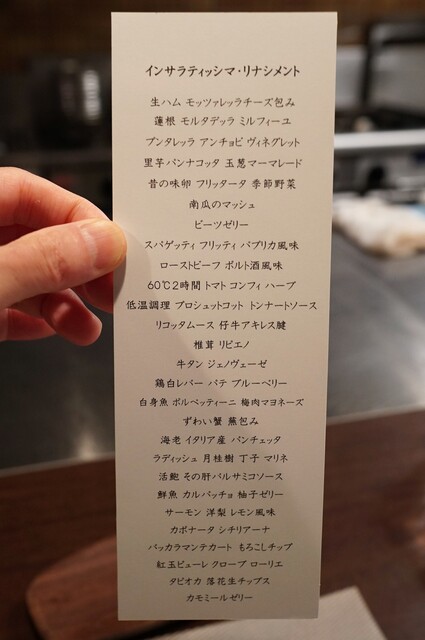 インサラティッシマ・リナシメント
生ハム モッツァレッラチーズ包み
蓮根 モルタデッラ ミルフィーユ
プンタレッラ アンチョビ ヴィネグレット
里芋パンナコッタ 玉葱マーマレード
昔の味卵 フリッタータ 季節野菜
南瓜のマッシュ
ビーツゼリー
スパゲッティ フリッティ パプリカ風味
ローストビーフ ポルト酒風味
60℃2時間 トマト コンフィ ハーブ
低温調理 プロシュットコット トンナートソース
リコッタムース 仔牛アキレス腱
椎茸 リピエノ
牛タン ジェノヴェーゼ
鶏白レバー パテ ブルーベリー
白身魚 ポルペッティーニ 梅肉マヨネーズ
ずわい蟹 蕪包み
海老 イタリア産 パンチェッタ
ラディッシュ 月桂樹 丁子 マリネ
活鮑 その肝バルサミコソース
鮮魚 カルパッチョ 柚子ゼリー
サーモン 洋梨 レモン風味
カポナータ シチリアーナ
バッカラマンテカート もろこしチップ
紅玉ピューレ クローブ ローリエ
タピオカ 落花生チップス
カモミールゼリー